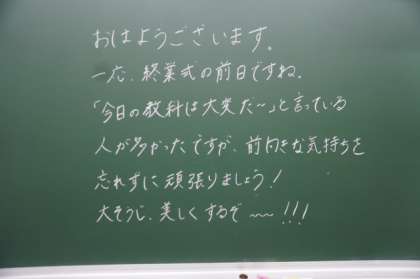 おはようございます。
一応、終業式の前日ですね。
「今日の教科は大変だ～」と言っている
人が多かったですが、前向きな気持ちを
忘れずに頑張りましょう！
大そうじ、美しくするぞ～～!!!